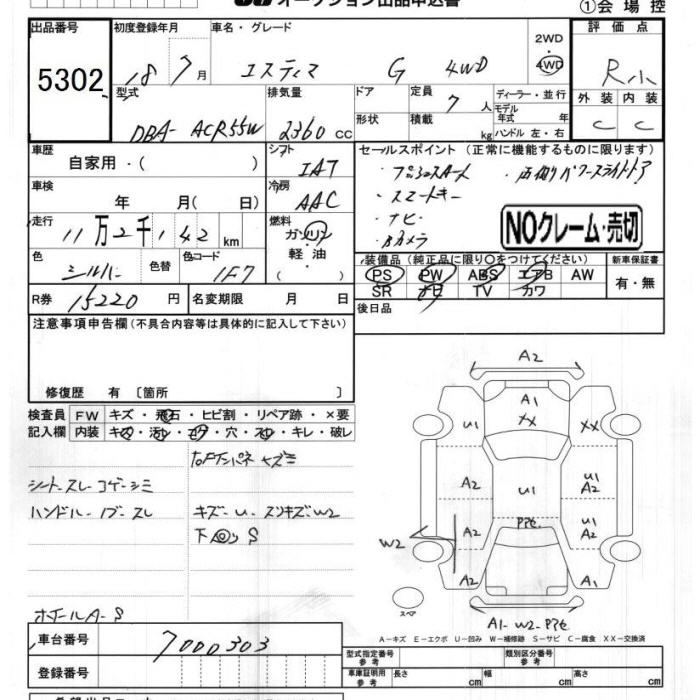 オークション出品申込書
①会場控
出品番号 初度登録年月 車名・グレード 評価点
5302 18 7月 エスティマ G 4WD 2WD 4WD R
外装 内装
C C
型式 排気量 ドア 定員 7人 ディーラー・並行
モデル年式 年
DBA- ACR55W 2360cc 形状 積載 kg ハンドル 左・右
車歴 シフト セールスポイント (正常に機能するものに限ります)
自家用・( ) IAT ・プッシュスタート ・両側パワースライドドア
車検 冷房 ・スマートキー
年 月( 日) AAC ・ナビ
走行 燃料 ・Bカメラ
11万2千142km ガソリン 軽油 ( ) NOクレーム・売切
色 色替 色コード 装備品 (純正品に限り○をつけてください) 新車保証書
シルバー 1F7 PS PW ABS エアB AW 有・無
R券 15220円 名変期限 月 日 SR ナビ TV カワ
後日品
注意事項申告欄(不具合内容等は具体的に記入して下さい)
修復歴 有 〔箇所 〕
検査員 FW キズ・飛石・ヒビ割・リペア跡・×要
記入欄 内装 キズ・汚れ・コゲ・穴・スレ・キレ・破レ
シートスレコゲシミ
ハンドルノブスレ キズ-U-スリキズW2
下回りS
ホイールA-S
A2
A1
XX
U1 XX
A2 U1 U1 A2
Pﾅｾ
W2 A2 U1 A2
A2 A1
スペア
A1-W2-Pﾅｾ
A-キズ E-エクボ U-凹み W-補修跡 S-サビ C-腐食 XX-交換済
車台番号 7000303
型式指定番号 参考 類別区分番号 参考
登録番号 車庫証明用 参考 長さ cm 幅 cm 高さ cm